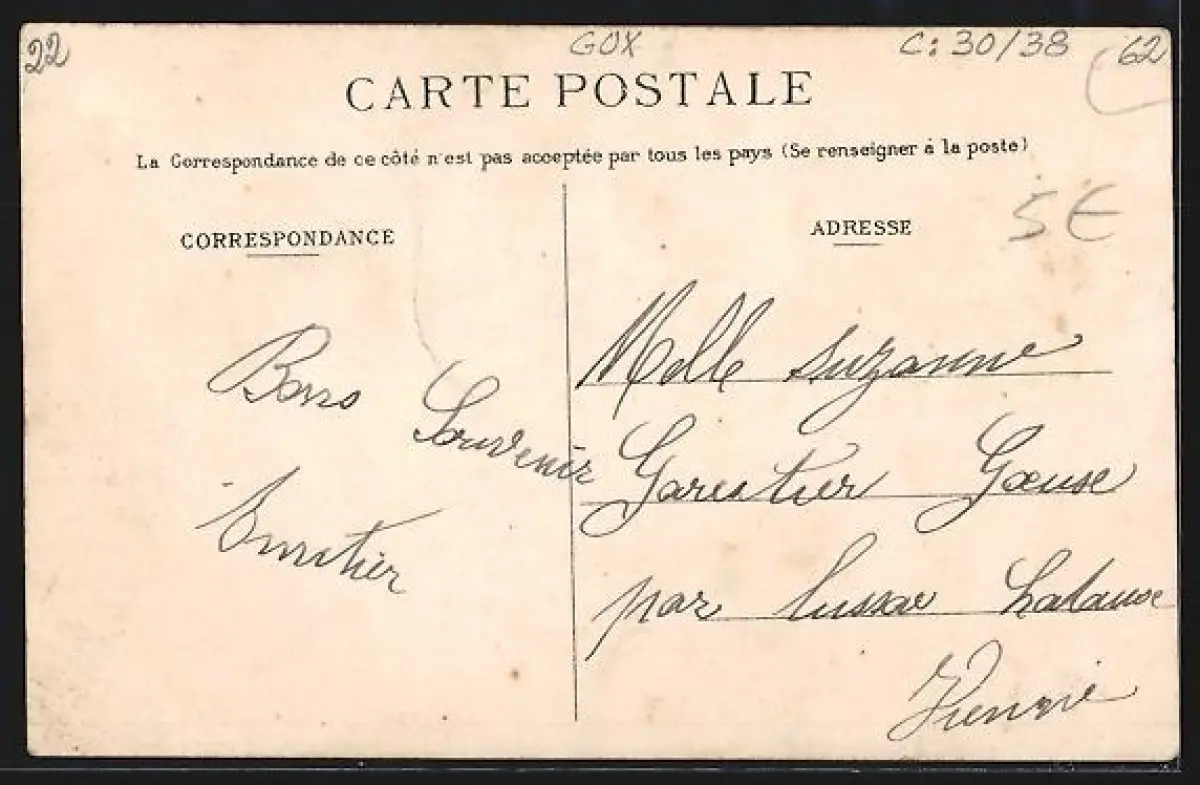 22
GOX
C: 30/38
62
CARTE POSTALE
La Correspondance de ce côté n'est pas acceptée par tous les pays (Se renseigner à la poste)
5€
CORRESPONDANCE
ADRESSE
Bons Souvenir
Melle Suzanne
Garestier
par Lussac
Vienne